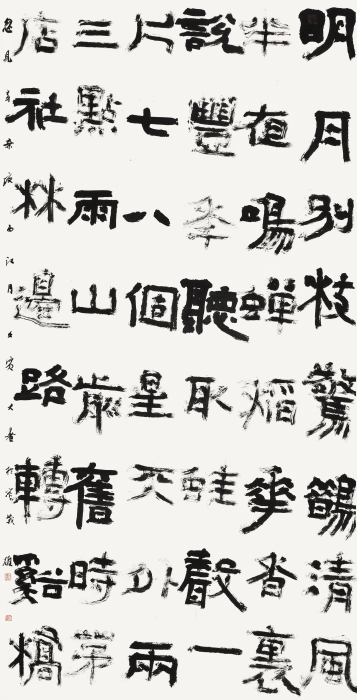 明月別枝驚鵲清風
半夜鳴蟬稻華香裏
說豐年聽取蛙聲一
片七八個星天外兩
三點雨山歬舊時茅
店社林邊路轉谿橋
忽見 辛棄疾西江月